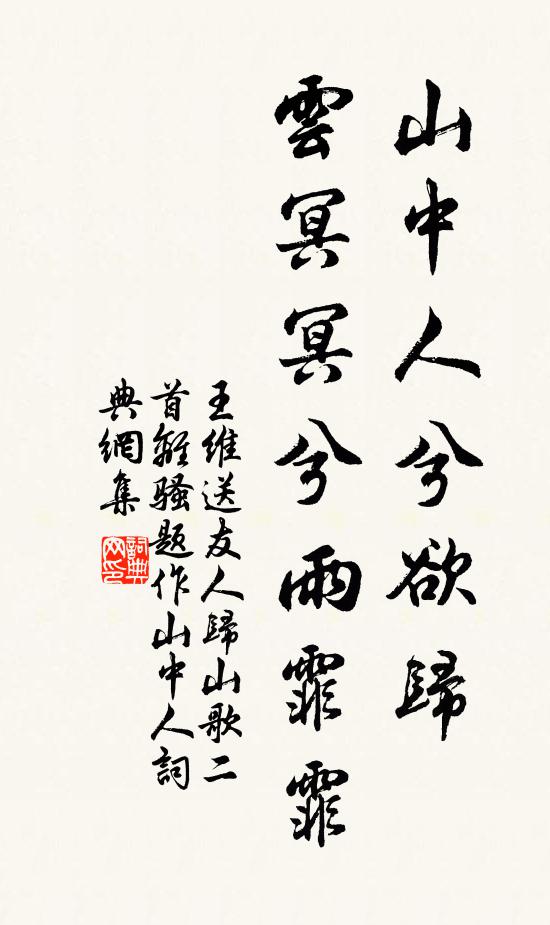 山中人兮欲歸
雲冥冥兮雨霏霏
王維送友人歸山歌二
首離騷題作山中人詞
典網集
詞典網印